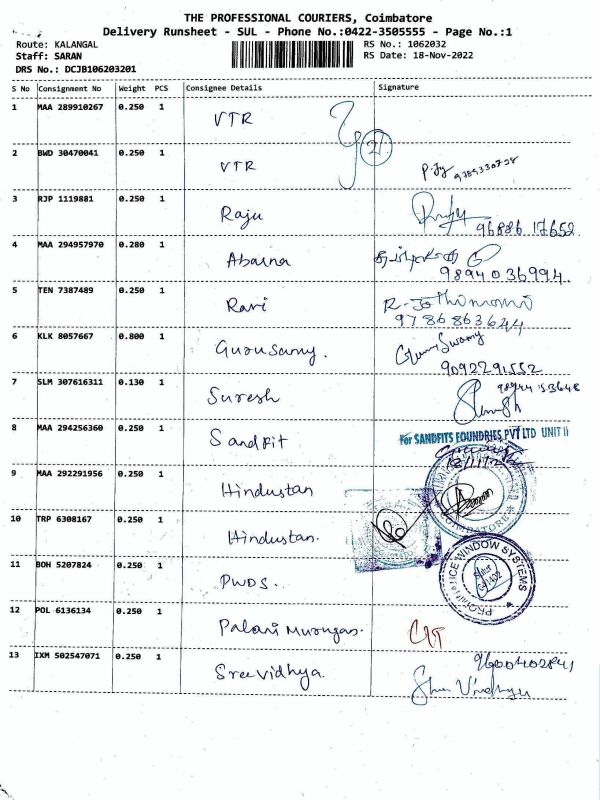 THE PROFESSIONAL COURIERS, Coimbatore
Delivery Runsheet - SUL - Phone No.:0422-3505555 - Page No.:1
Route: KALANGAL RS No.: 1062032
Staff: SARAN RS Date: 18-Nov-2022
DRS No.: DCJB106203201
S No Consignment No Weight PCS Consignee Details Signature
1 MAA 289910267 0.250 1 VTR
2 BWD 30470041 0.250 1 VTR
3 RJP 1119881 0.250 1 Raju
96886 17652
4 MAA 294957970 0.280 1 Abarna
98940 36994
5 TEN 7387489 0.250 1 Ravi R-Jothimani
9786863644
6 KLK 8057667 0.800 1 Gurusamy. GuruSwamy
9092291552
7 SLM 307616311 0.130 1 Suresh
8 MAA 294256360 0.250 1 Sandfit For SANDFITS FOUNDRIES PVT LTD UNIT II
9 MAA 292291956 0.250 1 Hindustan
COIMBATORE
10 TRP 6308167 0.250 1 Hindustan.
11 BOH 5207824 0.250 1 PWDS. WINDOW SYSTEMS
12 POL 6136134 0.250 1 Palani Murugas.
13 IXM 502547071 0.250 1 Sreevidhya 9600402841